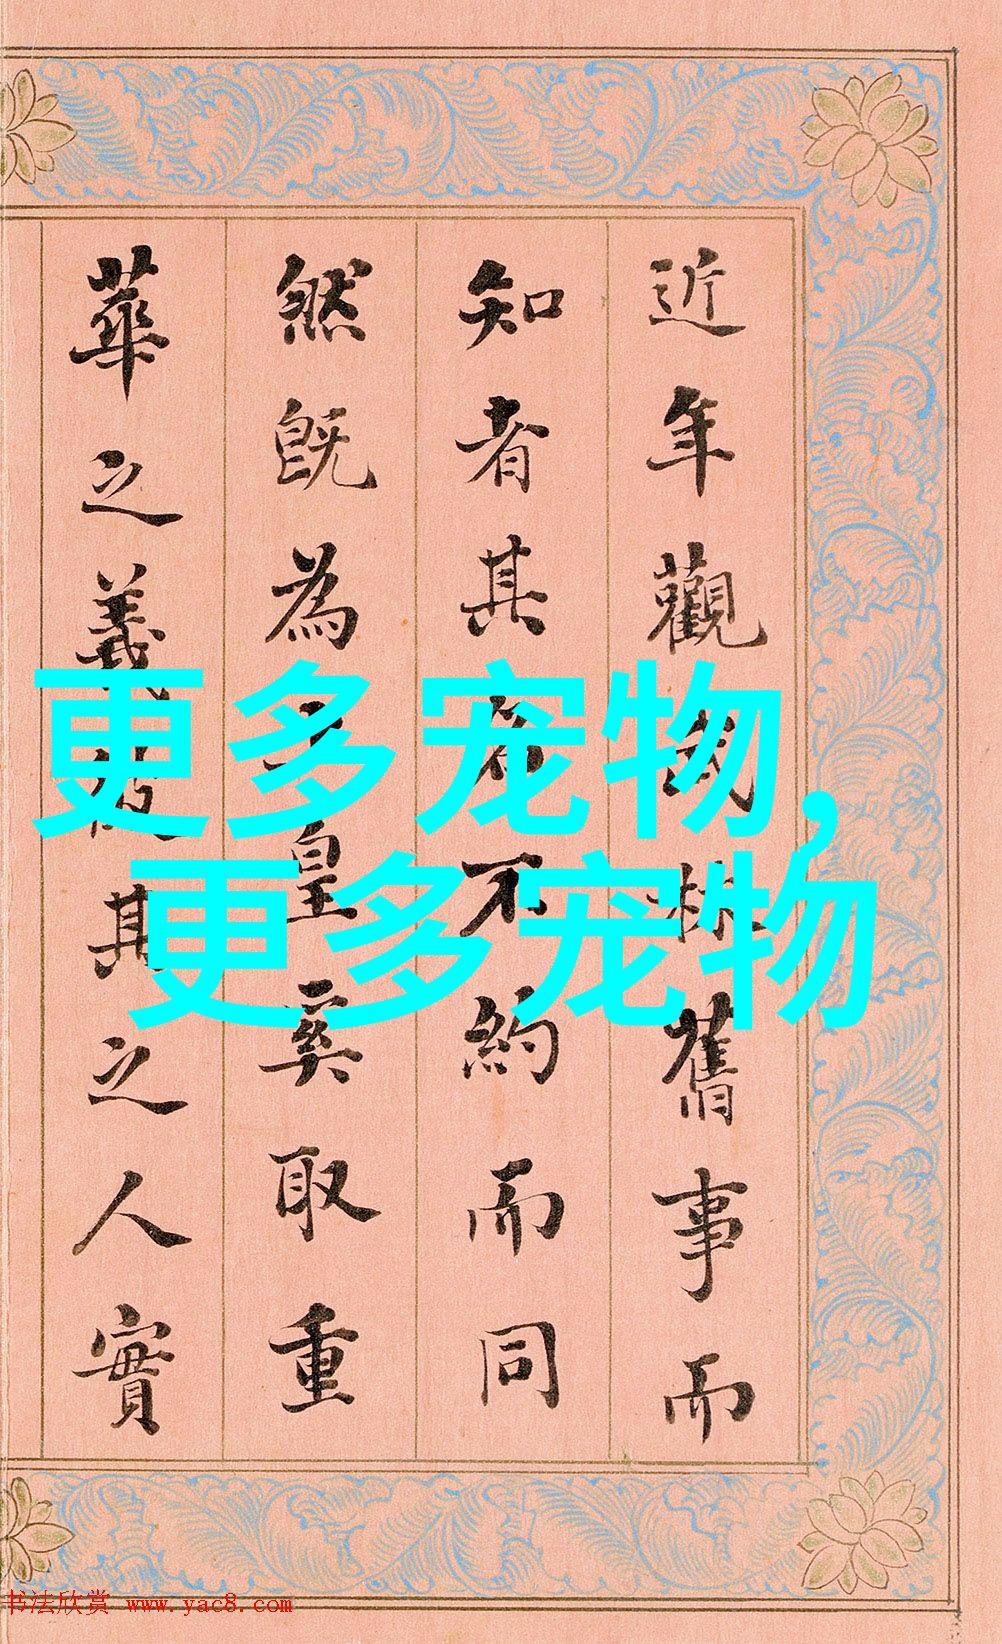 近年觀舊事而
知者其不約而同
然既為皇奚取重
華之義其之人實
更多宠物，
更多宠物
书法欣赏 www.yac8.com